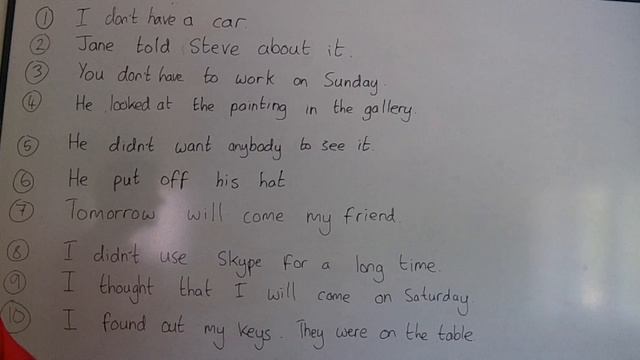 ① I don't have a car.
② Jane told Steve about it.
③ You don't have to work on Sunday.
④ He looked at the painting in the gallery.
⑤ He didn't want anybody to see it.
⑥ He put off his hat
⑦ Tomorrow will come my friend.
⑧ I didn't use Skype for a long time.
⑨ I thought that I will come on Saturday.
⑩ I found out my keys. They were on the table